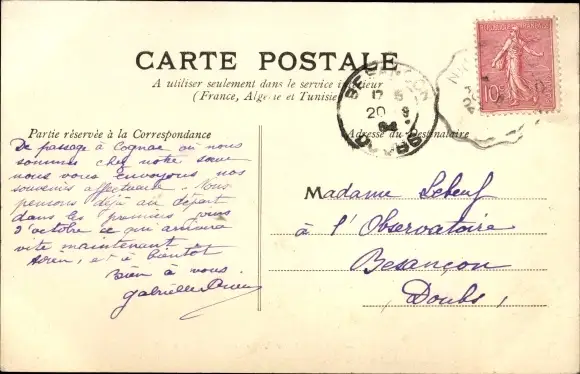 CARTE POSTALE
A utiliser seulement dans le service intérieur
(France, Algérie et Tunisie
Partie réservée à la Correspondance
De passage à Cognac où nous
sommes chez notre sœur
nous vous envoyons nos
souvenirs affectueux. Nous
pensons déjà au départ
dans les premiers jours
d'octobre ce qui arrivera
vite maintenant
et à bientôt
Bien à vous.
Gabrielle
BESANÇON
20 9
DOUBS
REPUBLIQUE FRANÇAISE
10c
Adresse du Destinataire
Madame Lebeuf
à l'Observatoire
Besançon
Doubs,